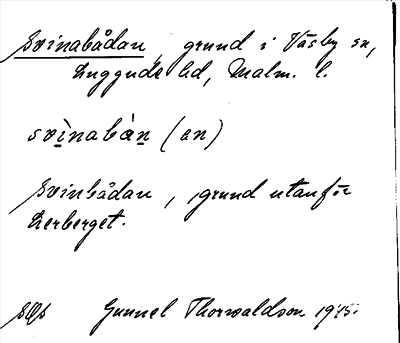 Svinabådan, grund i Väsby sn,
Luggude hd, Malm. l.
svìnabàn (an)
Svinbådan, grund utanför
Lerberget.
Gunnel Thorwaldson 1945.